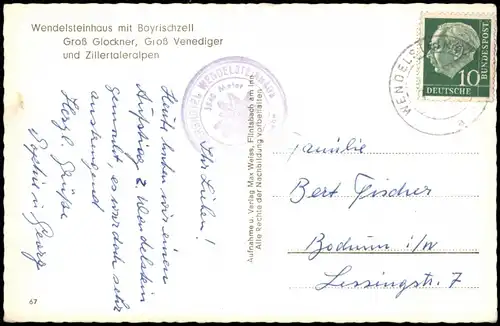 Wendelsteinhaus mit Bayrischzell
Groß Glockner, Groß Venediger
und Zillertaleralpen
WENDELSTEINHAUS
Meter
WENDELST
10
DEUTSCHE
BUNDESPOST
Ihr Lieben!
Heute haben wir einen
Aufstieg z. Wendelstein
gemacht, es war doch sehr
anstrengend
Herzl. Grüße
Sophie u. Georg
Aufnahme u. Verlag Max Weiss, Flintsbach am Inn
Alle Rechte der Nachbildung vorbehalten
Familie
Bert Fischer
Bochum i/W
Lessingstr. 7
67